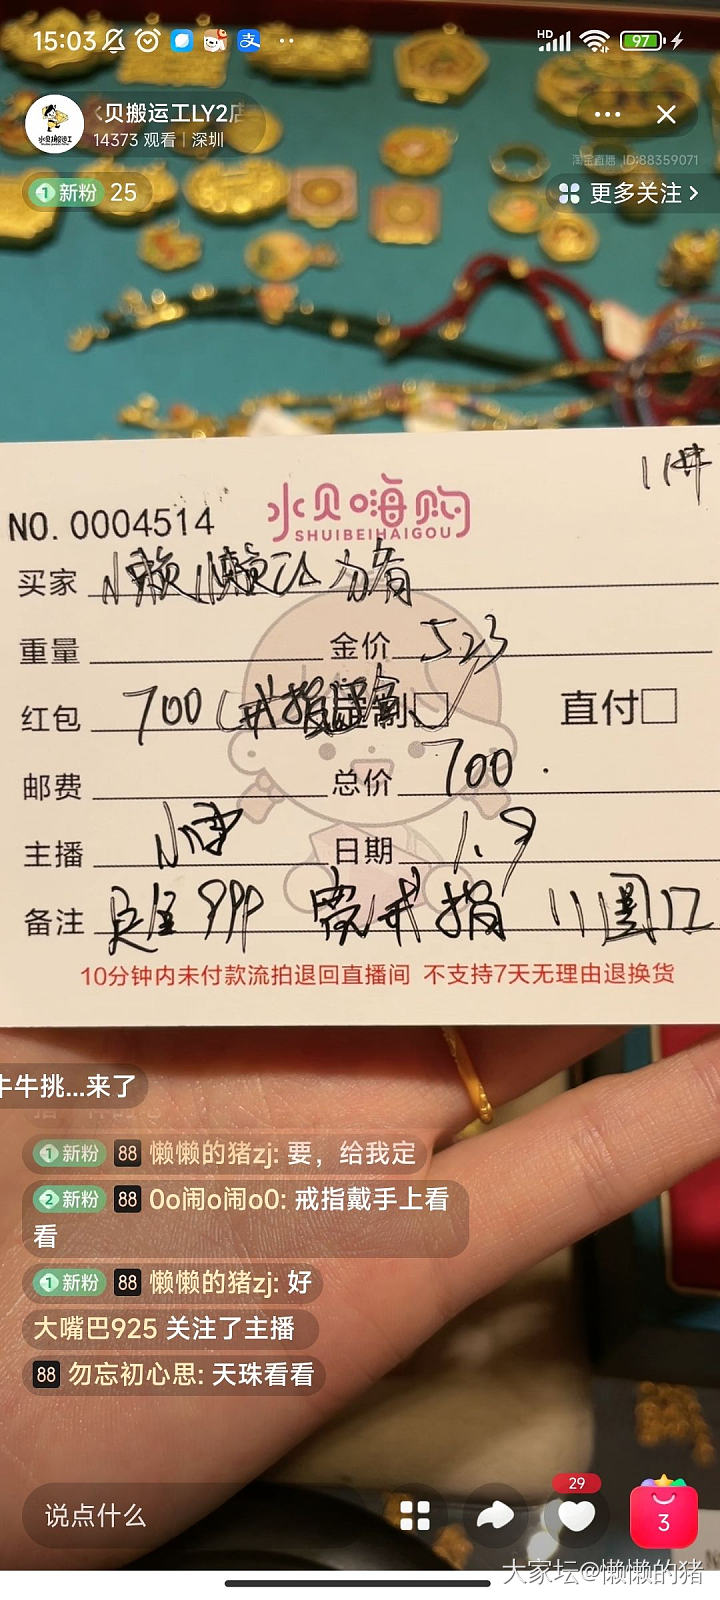 15:03
HD
97
水贝搬运工
贝搬运工LY2店
14373 观看 | 深圳
淘宝直播 ID:88359071
新粉 25
更多关注
11件
水贝嗨购
SHUIBEIHAIGOU
NO. 0004514
买家 懒懒的猪
重量 金价 523
红包 700 (戒指 直付
邮费 总价 700
主播 日期 1.9
备注 足金999 需戒指 11圈口
10分钟内未付款流拍退回直播间 不支持7天无理由退换货
牛牛挑...来了
1 新粉 88 懒懒的猪zj: 要，给我定
2 新粉 88 0o闹o闹o0: 戒指戴手上看
看
1 新粉 88 懒懒的猪zj: 好
大嘴巴925 关注了主播
88 勿忘初心思: 天珠看看
说点什么
29
3
大家坛@懒懒的猪